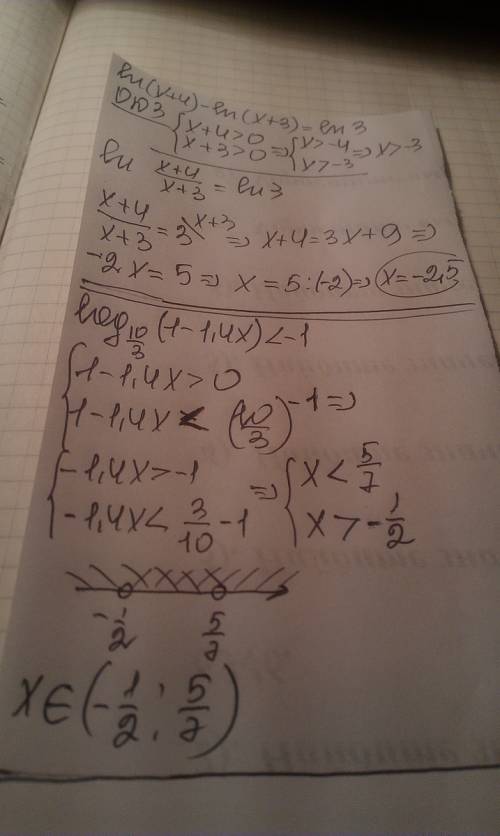 ln(x+4)-ln(x+3)=ln 3
ОДЗ {x+4>0 x+3>0 => {x>-4 x>-3 => x>-3
ln x+4/x+3 = ln 3
x+4/x+3 = 3\x+3 => x+4=3x+9 =>
-2x=5 => x=5:(-2) => x=-2,5
log 10/3 (1-1,4x)<-1
{1-1,4x>0
1-1,4x < (10/3)^-1 =>
{-1,4x>-1
-1,4x< 3/10 -1
=> {x< 5/7
x>- 1/2
-1/2 5/7
x∈(-1/2; 5/7)